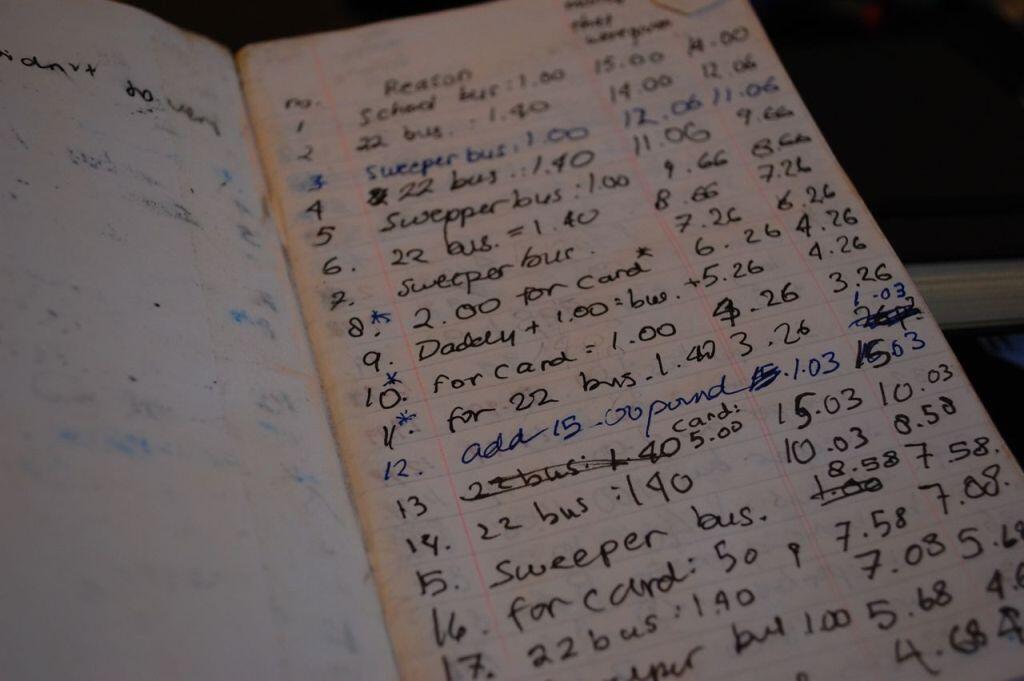 Reason
no.
1 School bus: 1.00 15.00 14.00
2 22 bus. : 1.40 14.00 12.06
3 sweeper bus: 1.00 12.06 11.06
4 22 bus.: 1.40 11.06 9.66
5 Swepper bus: 1.00 9.66 8.66
6. 22 bus. = 1.40 8.66 7.26
7. sweeper bus. 7.26 6.26
8.* 2.00 for card* 6.26 4.26
9. Daddy + 1.00 = bus. +5.26 4.26
10.* for card = 1.00 4.26 3.26
11.* for 22 bus. 1.40 3.26 1.03
12. add 15.00 pound 1.03 15.03
13 22 bus: 1.40 card: 5.00 15.03 10.03
14. 22 bus : 140 10.03 8.58
15. Sweeper bus. 8.58 7.58.
16. for card: 50 p 7.58 7.08.
17. 22 bus : 1.40 7.08 5.68
bus 1.00 5.68
4.68